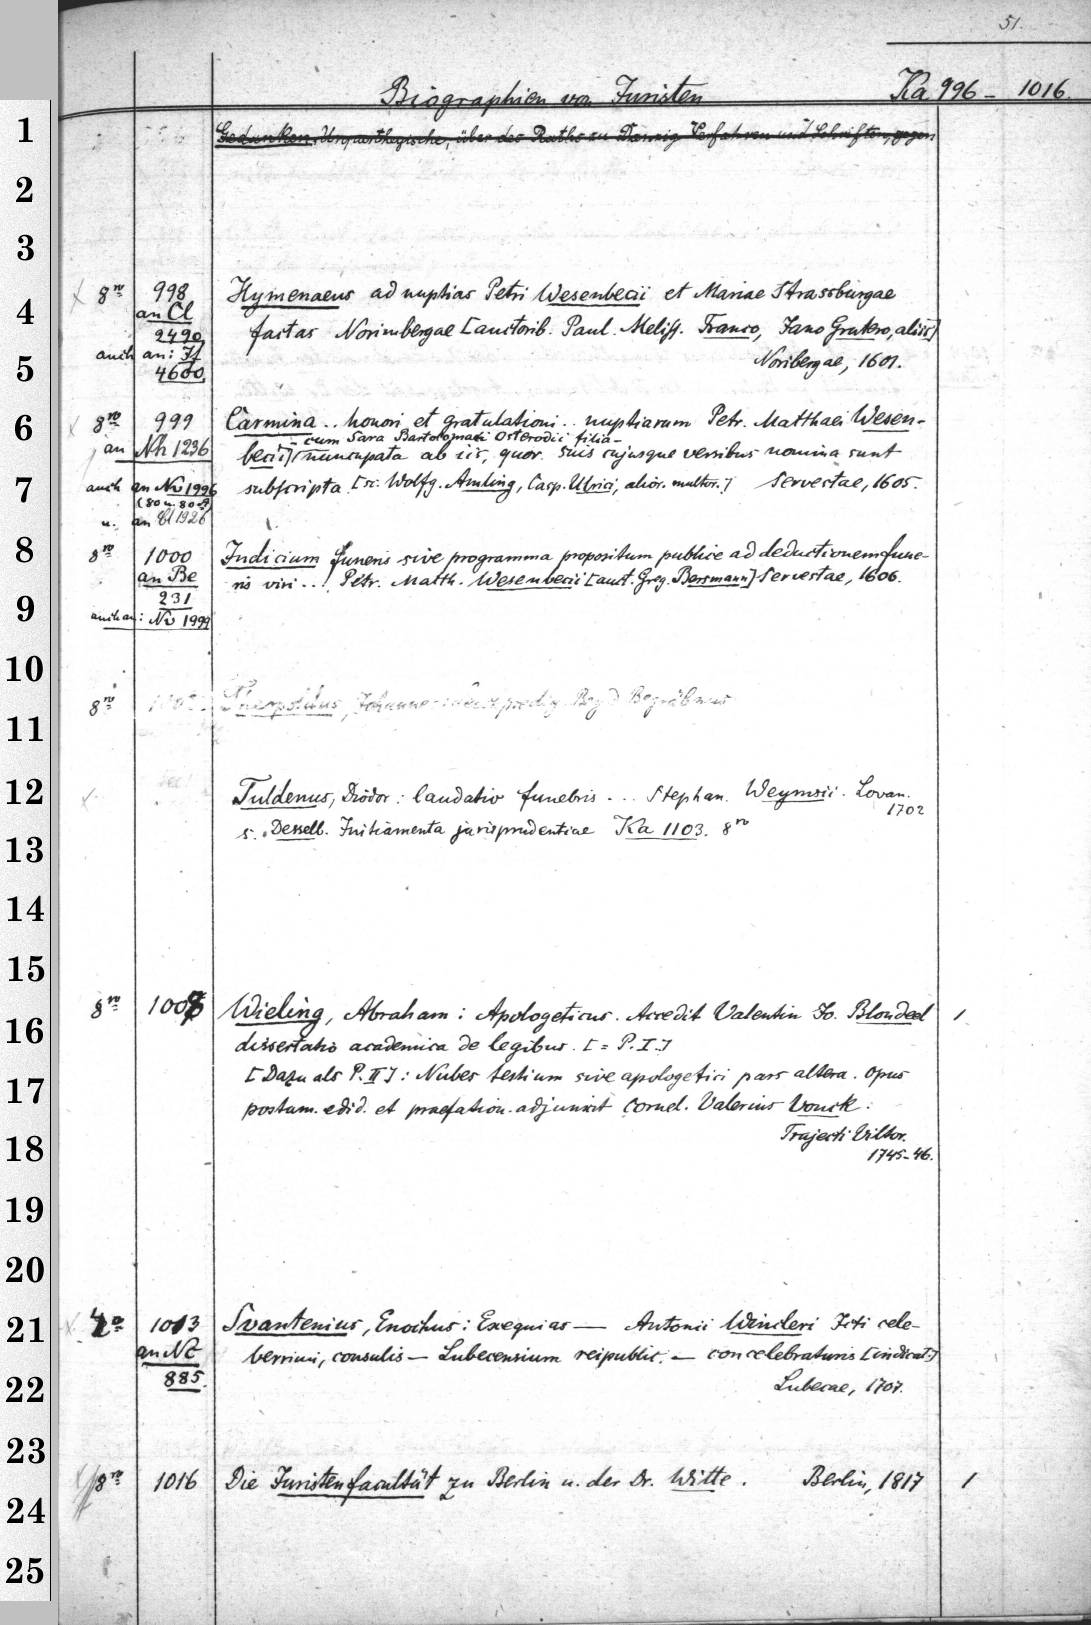 51.
Biographien von Juristen Ka 996 - 1016
Gedanken, Unparthegische, über des Raths zu Danzig Verfahren und Schriften, gegen
8ro 998 Hymenaeus ad nuptias Petri Wesenbecii et Mariae Strassburgae
an Cl
2490 factas Norimbergae [auctorib. Paul. Meliss. Franco, Jano Grutero, aliis]
auch an: Jf
4600. Noribergae, 1601.
8ro 999 Carmina .. honori et gratulationi .. nuptiarum Petr. Matthaei Wesen-
cum Sara Bartolomaei Osterodici filia-
an Nh 1236 becii] nuncupata ab iis, quor. suis cujusque versibus nomina sunt
auch an Nv 1996 subscripta [sc. Wolfg. Amling, Casp. Ulrici, alior. multor.] Servestae, 1605.
(80 u. 80-9)
u. an 1926
8ro 1000 Judicium funeris sive programma propositum publice ad deductionem fune-
an Be ris viri ..! Petr. Matth. Wesenbecii [auct. Greg. Bersmann] Servestae, 1606.
231
auch an: Nv 1999
8ro Johanne Begräbnus
Tuldenus, Diodor: laudatio funebris ... Stephan. Weymsii. Lovan.
1702
s. Desselb. Initiamenta jurisprudentiae Ka 1103. 8ro
8ro 1008 Wieling, Abraham: Apologeticus. Accedit Valentin Jo. Blondeel 1
dissertatio academica de legibus. [= P. I.]
[Dazu als P. II]: Nubes testium sive apologetici pars altera. Opus
postum. edid. et praefation. adjunxit Cornel. Valerius Vonck:
Trajecti Viltor.
1745-46.
4o 1013 Svantenius, Enochus: Exequias — Antonii Winderi Jcti cele-
an Nt berrimi, consulis — Lubecensium reipublic. — concelebraturis [indicat.]
885. Lubecae, 1707.
8ro 1016 Die Juristenfacultät zu Berlin u. der Dr. Witte. Berlin, 1817 1
1
2
3
4
5
6
7
8
9
10
11
12
13
14
15
16
17
18
19
20
21
22
23
24
25